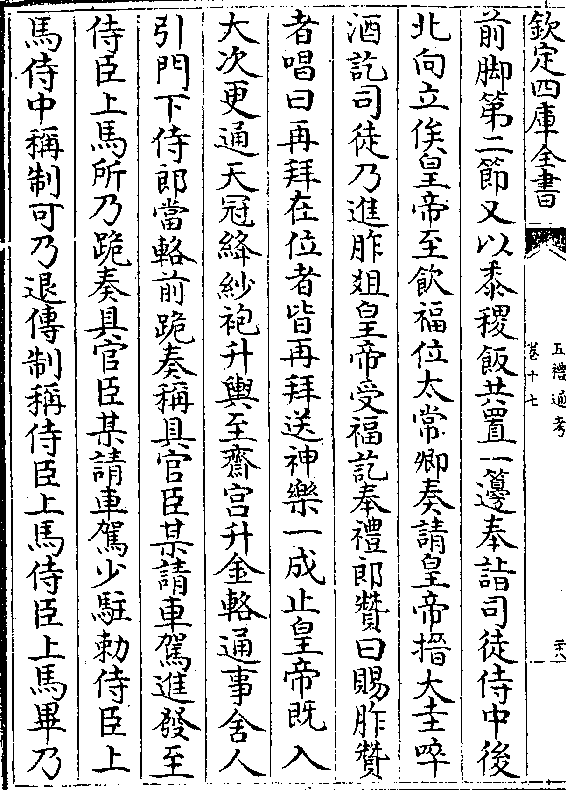 欽定四庫全書
五禮通考
卷十七
前脚第二節又以黍稷飯共置一籩奉詣司徒侍中後
北向立俟皇帝至飲福位太常卿奏請皇帝搢大圭啐
酒訖司徒乃進胙俎皇帝受福訖奉禮郎贊曰賜胙贊
者唱曰再拜在位者皆再拜送神樂一成止皇帝既入
大次更通天冠絳紗袍升輿至齋宫升金輅通事舍人
引門下侍郎當輅前跪奏稱具官臣某請車駕進發至
侍臣上馬所乃跪奏具官臣某請車駕少駐勅侍臣上
馬侍中稱制可乃退傳制稱侍臣上馬侍臣上馬畢乃